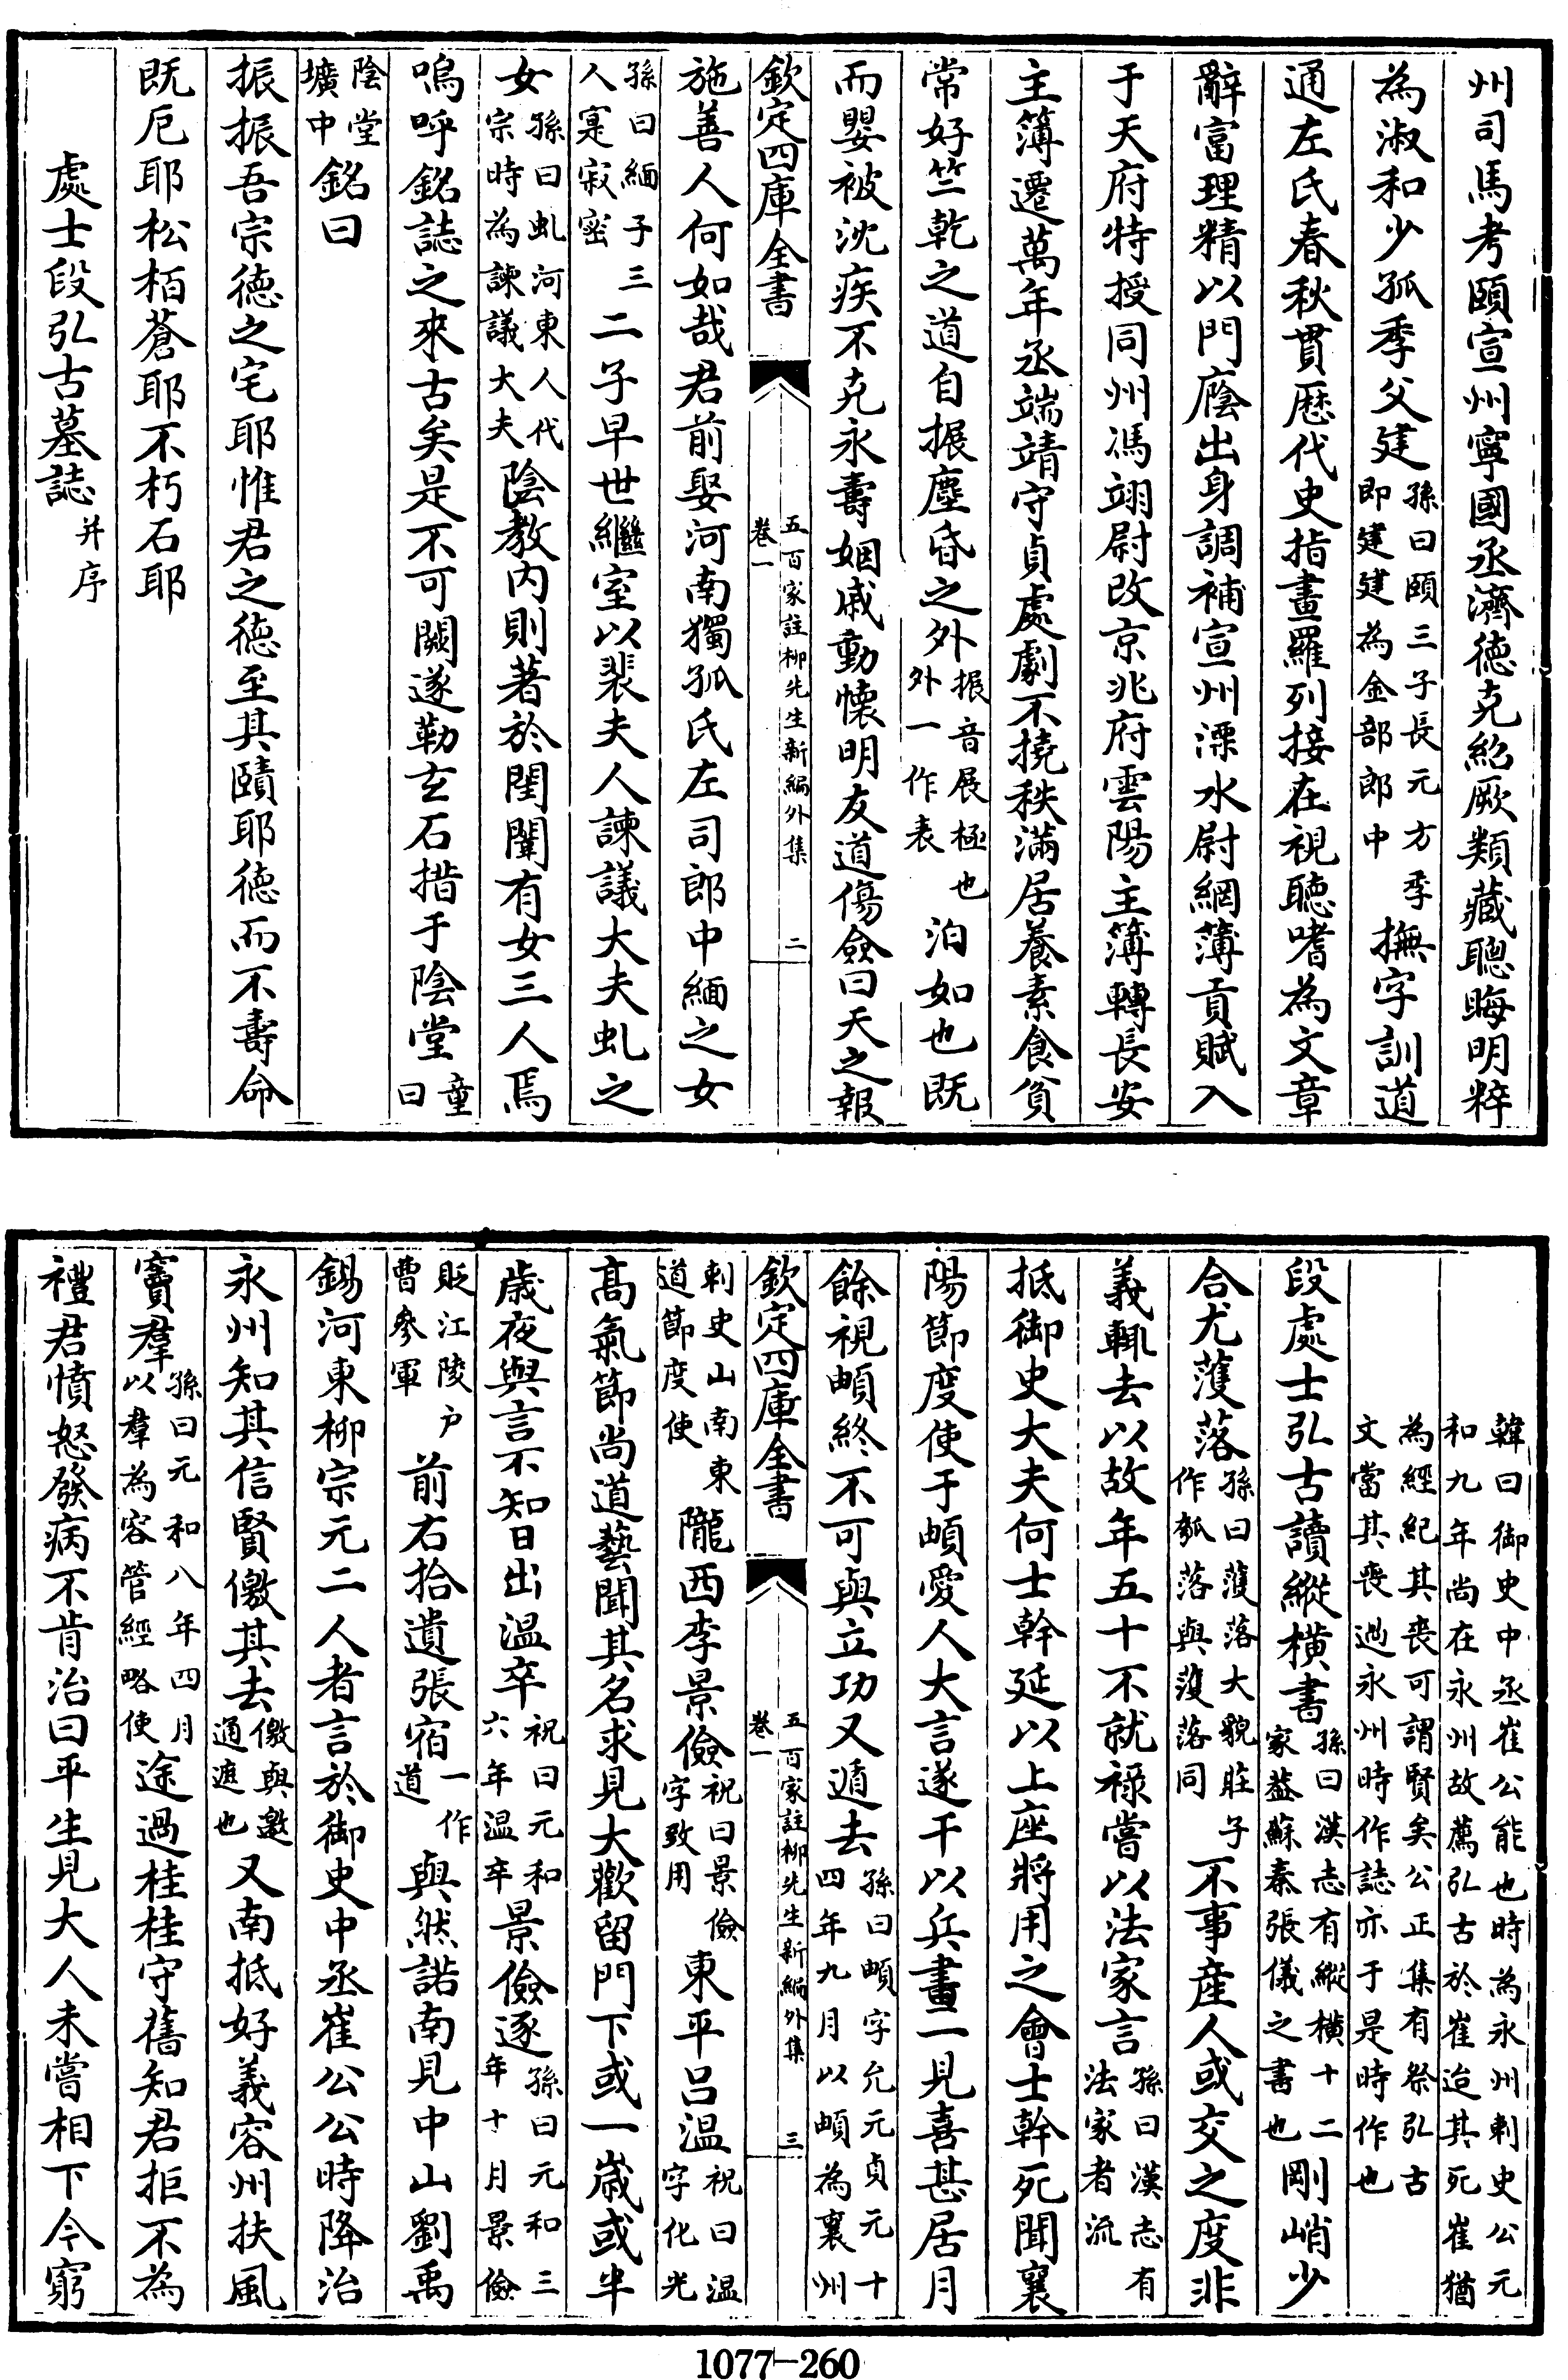 州司馬考頤宣州寧國丞濟德克紹厥類藏聰晦明粹
為淑和少孤季父建孫曰頤三子長元方季即建建為金部郎中撫字訓道
通左氏春秋貫歷代史指畫羅列接在視聽嗜為文章
辭富理精以門廕出身調補宣州溧水尉網薄貢賦入
于天府特授同州馮翊尉改京兆府雲陽主簿轉長安
主簿遷萬年丞端靖守貞處劇不撓秩滿居養素食貧
常好竺乾之道自振塵昏之外振音展極也外一作表泊如也既
而嬰被沈疾不克永壽姻戚動懷明友道傷僉曰天之報
欽定四庫全書
五百家註柳先生新編外集
卷一
二
施善人何如哉君前娶河南獨孤氏左司郎中緬之女
孫曰緬子三人寔寂密二子早世繼室以裴夫人諫議大夫虬之
女孫曰虬河東人代宗時為諫議大夫陰教內則著於閨闈有女三人焉
嗚呼銘誌之來古矣是不可闕遂勒玄石措于陰堂童曰
陰堂壙中銘曰
振振吾宗德之宅耶惟君之德至其賾耶德而不壽命
既厄耶松栢蒼耶不朽石耶
處士段弘古墓誌并序
韓曰御史中丞崔公能也時為永州刺史公元和九年尚在永州故薦弘古於崔迨其死崔猶
為經紀其喪可謂賢矣公正集有祭弘古文當其喪過永州時作誌亦于是時作也
段處士弘古讀縱橫書孫曰漢志有縱橫十二家葢蘇秦張儀之書也剛峭少
合尤蒦落孫曰蒦落大貌莊子作瓠落與蒦落同不事産人或交之度非
義輒去以故年五十不就祿嘗以法家言孫曰漢志有法家者流
抵御史大夫何士幹延以上座將用之會士幹死聞襄
陽節度使于頔愛人大言遂干以兵畫一見喜甚居月
餘視頔終不可與立功又遁去孫曰頔字允元貞元十四年九月以頔為襄州
欽定四庫全書
五百家註柳先生新編外集
卷一
三
刺史山南東道節度使隴西李景儉祝曰景儉字致用東平呂溫祝曰溫字化光
高氣節尚道藝聞其名求見大歡留門下或一歲或半
歲夜與言不知日出溫卒祝曰元和六年溫卒景儉逐孫曰元和三年十月景儉
貶江陵户曹參軍前右拾遺張宿一作道與然諾南見中山劉禹
錫河東柳宗元二人者言於御史中丞崔公公時降治
永州知其信賢徼其去徼與邀通遮也又南抵好義容州扶風
竇羣孫曰元和八年四月以羣為容管經略使途過桂桂守舊知君拒不為
禮君憤怒發病不肯治曰平生見大人未嘗相下今窮
1077—260